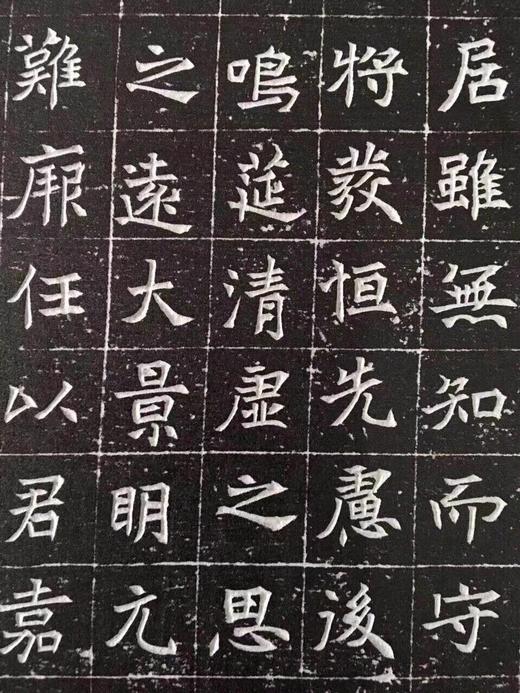 居雖無知而守
將發恒先慮後
鳴莚清虛之思
之遠大景明元
難厥任以君嘉